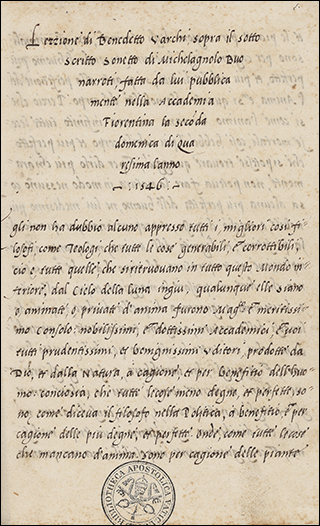 Lezzione di Benedetto Varchi sopra il sotto
scritto Sonetto di Michelagnolo Buo
narroti fatta da lui pubblica
mente nella Accademia
Fiorentina la secōda
domenica di Qua
resima l'anno
1546
gli non ha dubbio alcuno appresso tutti i migliori cosi fi
losofi come Teologi che tutte le cose generabili, e corrottibili
cio e tutte quelle che si ritruovano in tutto questo Mondo in
feriore, dal Cielo della luna ingiu qualunque elle siano
o animate, o private d'anima furono Mag.co e meritissi
mo Consolo nobilissimi, e dottissimi Accademici e voi
tutti prudentissimi, et benignissimi Uditori prodotte da
Dio, et dalla Natura a cagione, et per benefitio dell'huo
mo. conciosia che tutte le cose meno degne, et perfette, so
no come diceva il filosofo nella Politica, a benefitio e per
cagione delle piu degne, et perfette onde, come tutte le cose
che mancano d'anima, sono per cagione delle piante
BIBLIOTHECA APOSTOLICA VATICANA